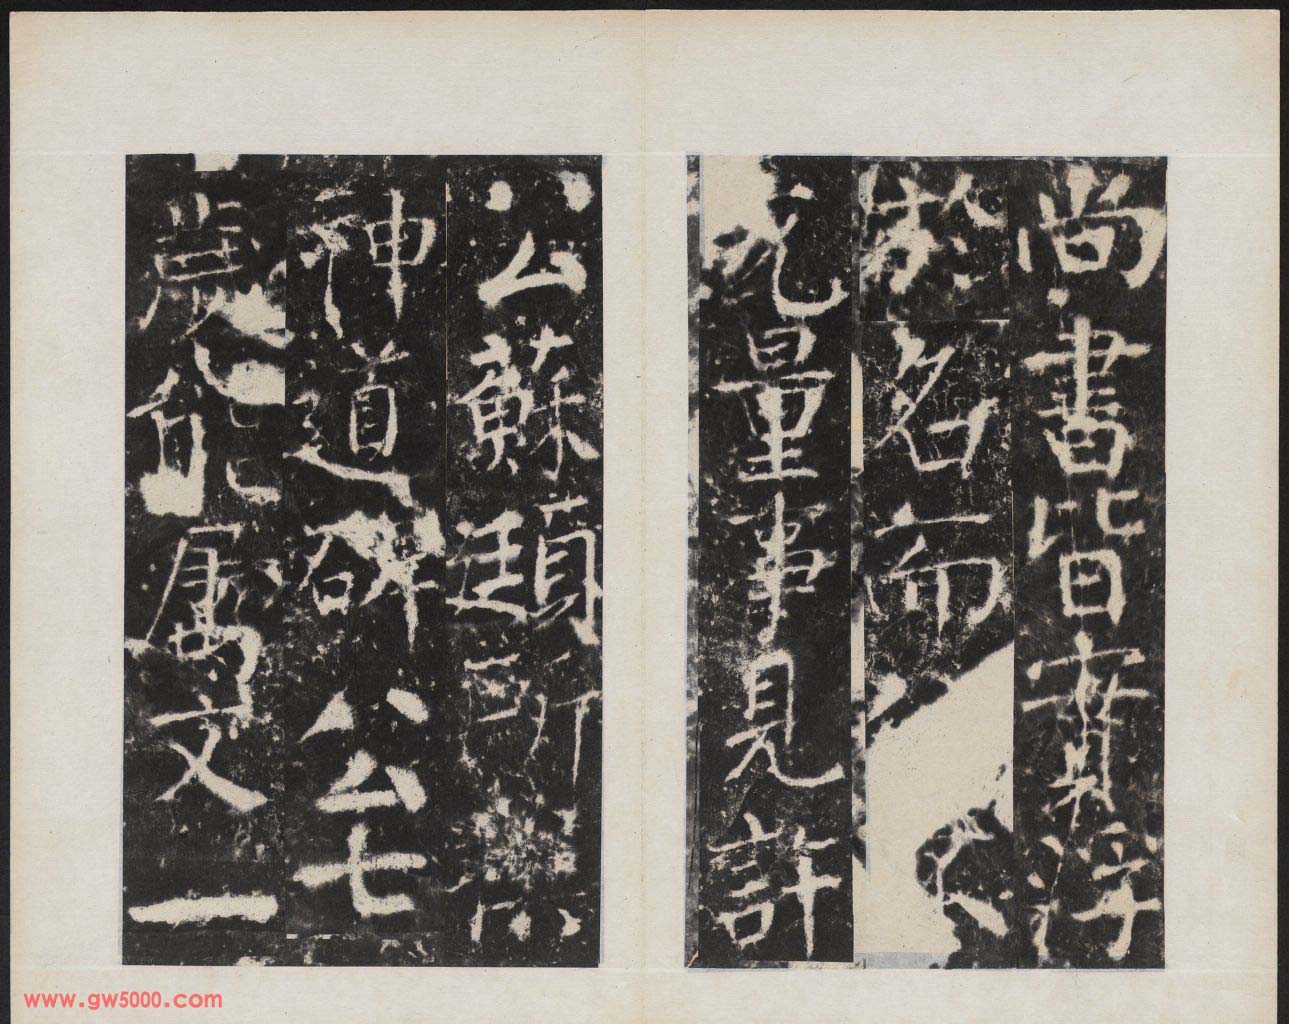 尚書皆有浮
於名而
元量事見許
公蘇頲所
神道碑公七
歲能屬文一
www.gw5000.com